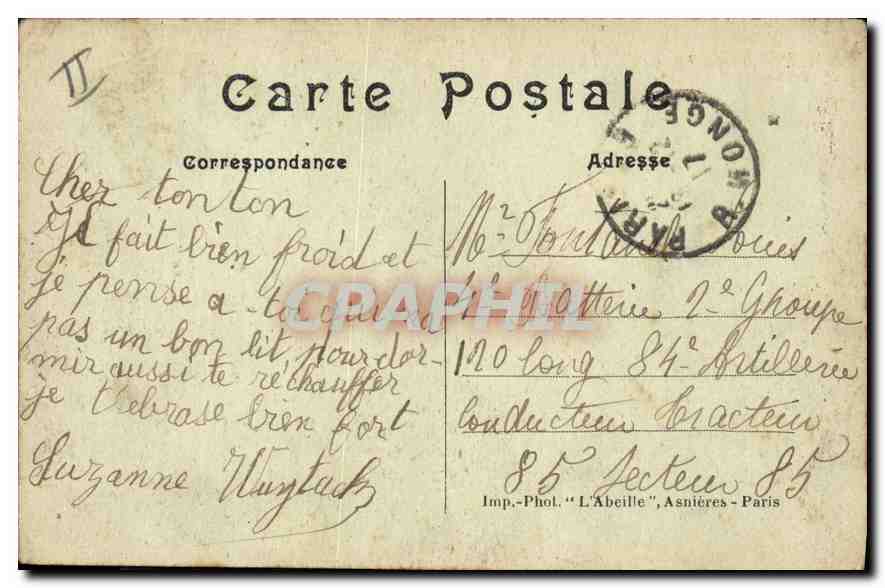 II
Carte Postale
Correspondance
Cher tonton
Il fait bien froid et
je pense a toi qui na
pas un bon lit pour dor-
mir aussi te réchauffer
je t'ebrase bien fort
Suzanne Wuytack
Adresse
PARIS
R. MONGE
17
Mr Fontaine Louis
4e Batterie 2e Groupe
120 long 84e Artillerie
Conducteur tracteur
85 Secteur 85
Imp.-Phot. "L'Abeille", Asnières - Paris
CPAPHIL